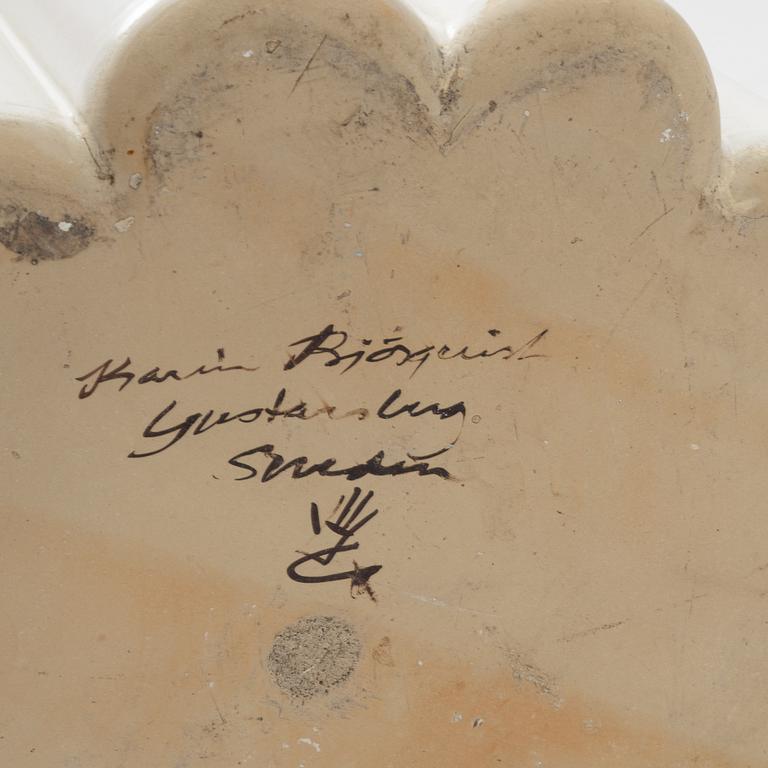 Karin Björquist
Gustavsberg
Sweden